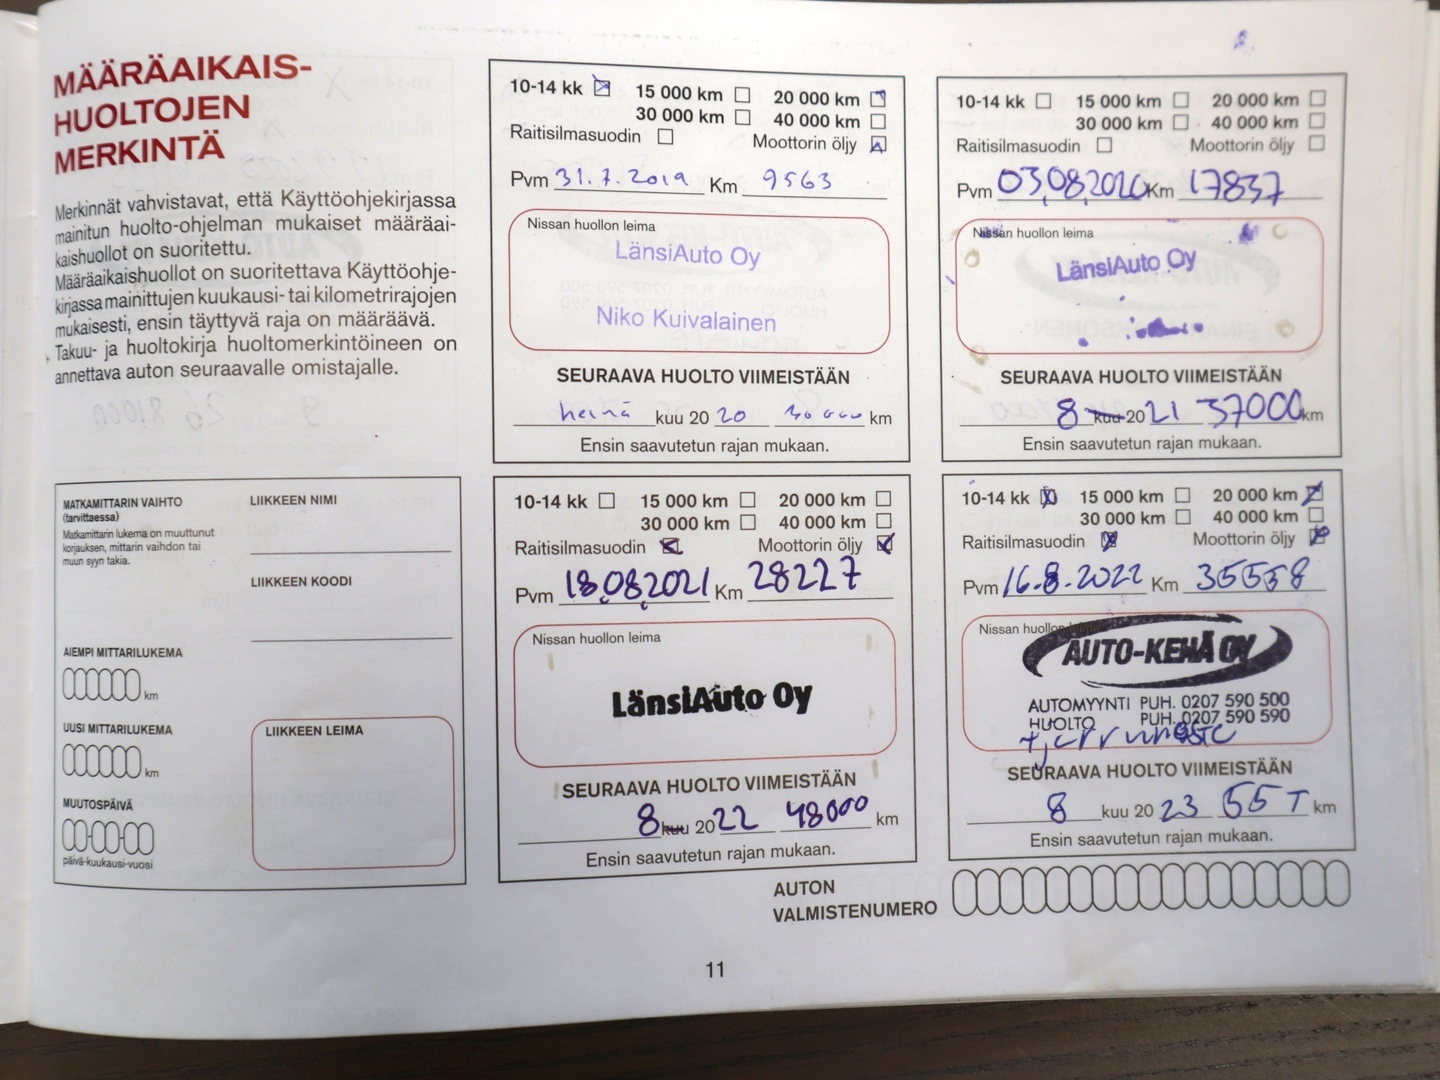 MÄÄRÄAIKAIS-
HUOLTOJEN
MERKINTÄ
Merkinnät vahvistavat, että Käyttöohjekirjassa
mainitun huolto-ohjelman mukaiset määräai-
kaishuollot on suoritettu.
Määräaikaishuollot on suoritettava Käyttöohje-
kirjassa mainittujen kuukausi- tai kilometrirajojen
mukaisesti, ensin täyttyvä raja on määräävä.
Takuu- ja huoltokirja huoltomerkintöineen on
annettava auton seuraavalle omistajalle.
10-14 kk 15 000 km 20 000 km
30 000 km 40 000 km
Raitisilmasuodin Moottorin öljy
Pvm 31.7.2019 Km 9563
Nissan huollon leima
LänsiAuto Oy
Niko Kuivalainen
SEURAAVA HUOLTO VIIMEISTÄÄN
heinä kuu 20 20 30000 km
Ensin saavutetun rajan mukaan.
10-14 kk 15 000 km 20 000 km
30 000 km 40 000 km
Raitisilmasuodin Moottorin öljy
Pvm 03.08.2020 Km 17837
Nissan huollon leima
LänsiAuto Oy
SEURAAVA HUOLTO VIIMEISTÄÄN
8 kuu 20 21 37000 km
Ensin saavutetun rajan mukaan.
MATKAMITTARIN VAIHTO
(tarvittaessa)
Matkamittarin lukema on muuttunut
korjauksen, mittarin vaihdon tai
muun syyn takia.
LIIKKEEN NIMI
LIIKKEEN KOODI
AIEMPI MITTARILUKEMA
km
UUSI MITTARILUKEMA
km
MUUTOSPÄIVÄ
päivä-kuukausi-vuosi
LIIKKEEN LEIMA
10-14 kk 15 000 km 20 000 km
30 000 km 40 000 km
Raitisilmasuodin Moottorin öljy
Pvm 18.08.2021 Km 28227
Nissan huollon leima
LänsiAuto Oy
SEURAAVA HUOLTO VIIMEISTÄÄN
8 kuu 20 22 48000 km
Ensin saavutetun rajan mukaan.
10-14 kk 15 000 km 20 000 km
30 000 km 40 000 km
Raitisilmasuodin Moottorin öljy
Pvm 16.8.2022 Km 35558
Nissan huollon
AUTO-KEHÄ OY
AUTOMYYNTI PUH. 0207 590 500
HUOLTO PUH. 0207 590 590
SEURAAVA HUOLTO VIIMEISTÄÄN
8 kuu 20 23 55 T km
Ensin saavutetun rajan mukaan.
AUTON
VALMISTENUMERO
11